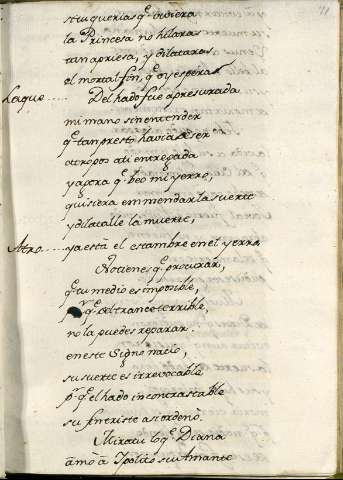 71
si tu querias q̃ viviera
la Princesa no hilaras
tan apriesa, y dilataras
el mortal fin, q̃ oy esperas
Laque..... Del hado fue apresurada
mi mano sin entender
q̃ tan presto havia de ser
atropos a ti entregada
y aora q̃ beo mi yerro,
quisiera emmendar la suerte
y dilatalle la muerte,
Atro..... ya està el estambre en el yerro
No tienes q̃ procurar,
q̃ tu medio es imposible,
q̃ del trance terrible,
no la puedes reparar.
en este Signo naciò,
su suerte es irrevocable
p.r q̃ el hado incontrastable
su fin triste asi ordenò.
Mira tu lo q̃ Diana
amò à Ipolito su Amante